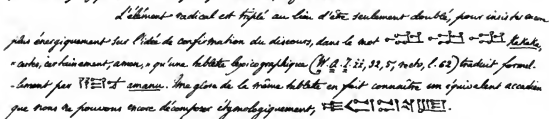 L'élément radical est triplé au lieu d'être seulement doublé, pour insister encore
plus énergiquement sur l'idée de confirmation du discours, dans le mot kakaka,
« certes, certainement, amen, » qu'une tablette lexicographique (W. A. I. ii, 32, 5, recto, l. 62) traduit formel-
-lement par amanu. Une glose de la même tablette en fait connaître un équivalent accadien
que nous ne pouvons encore décomposer étymologiquement,